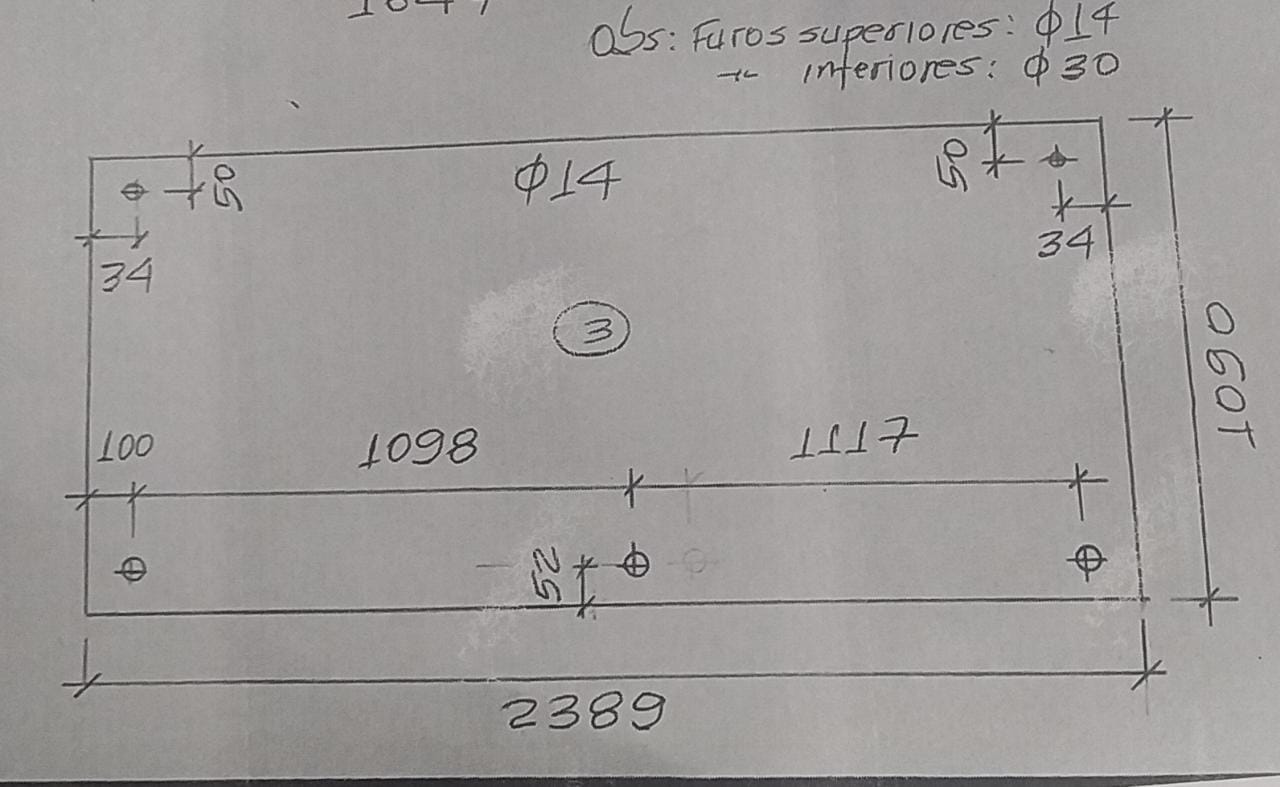 Obs: Furos superiores: ϕ14
-//- inferiores: ϕ30
50
ϕ14
50
34
34
3
1090
100
1098
1117
52
2389